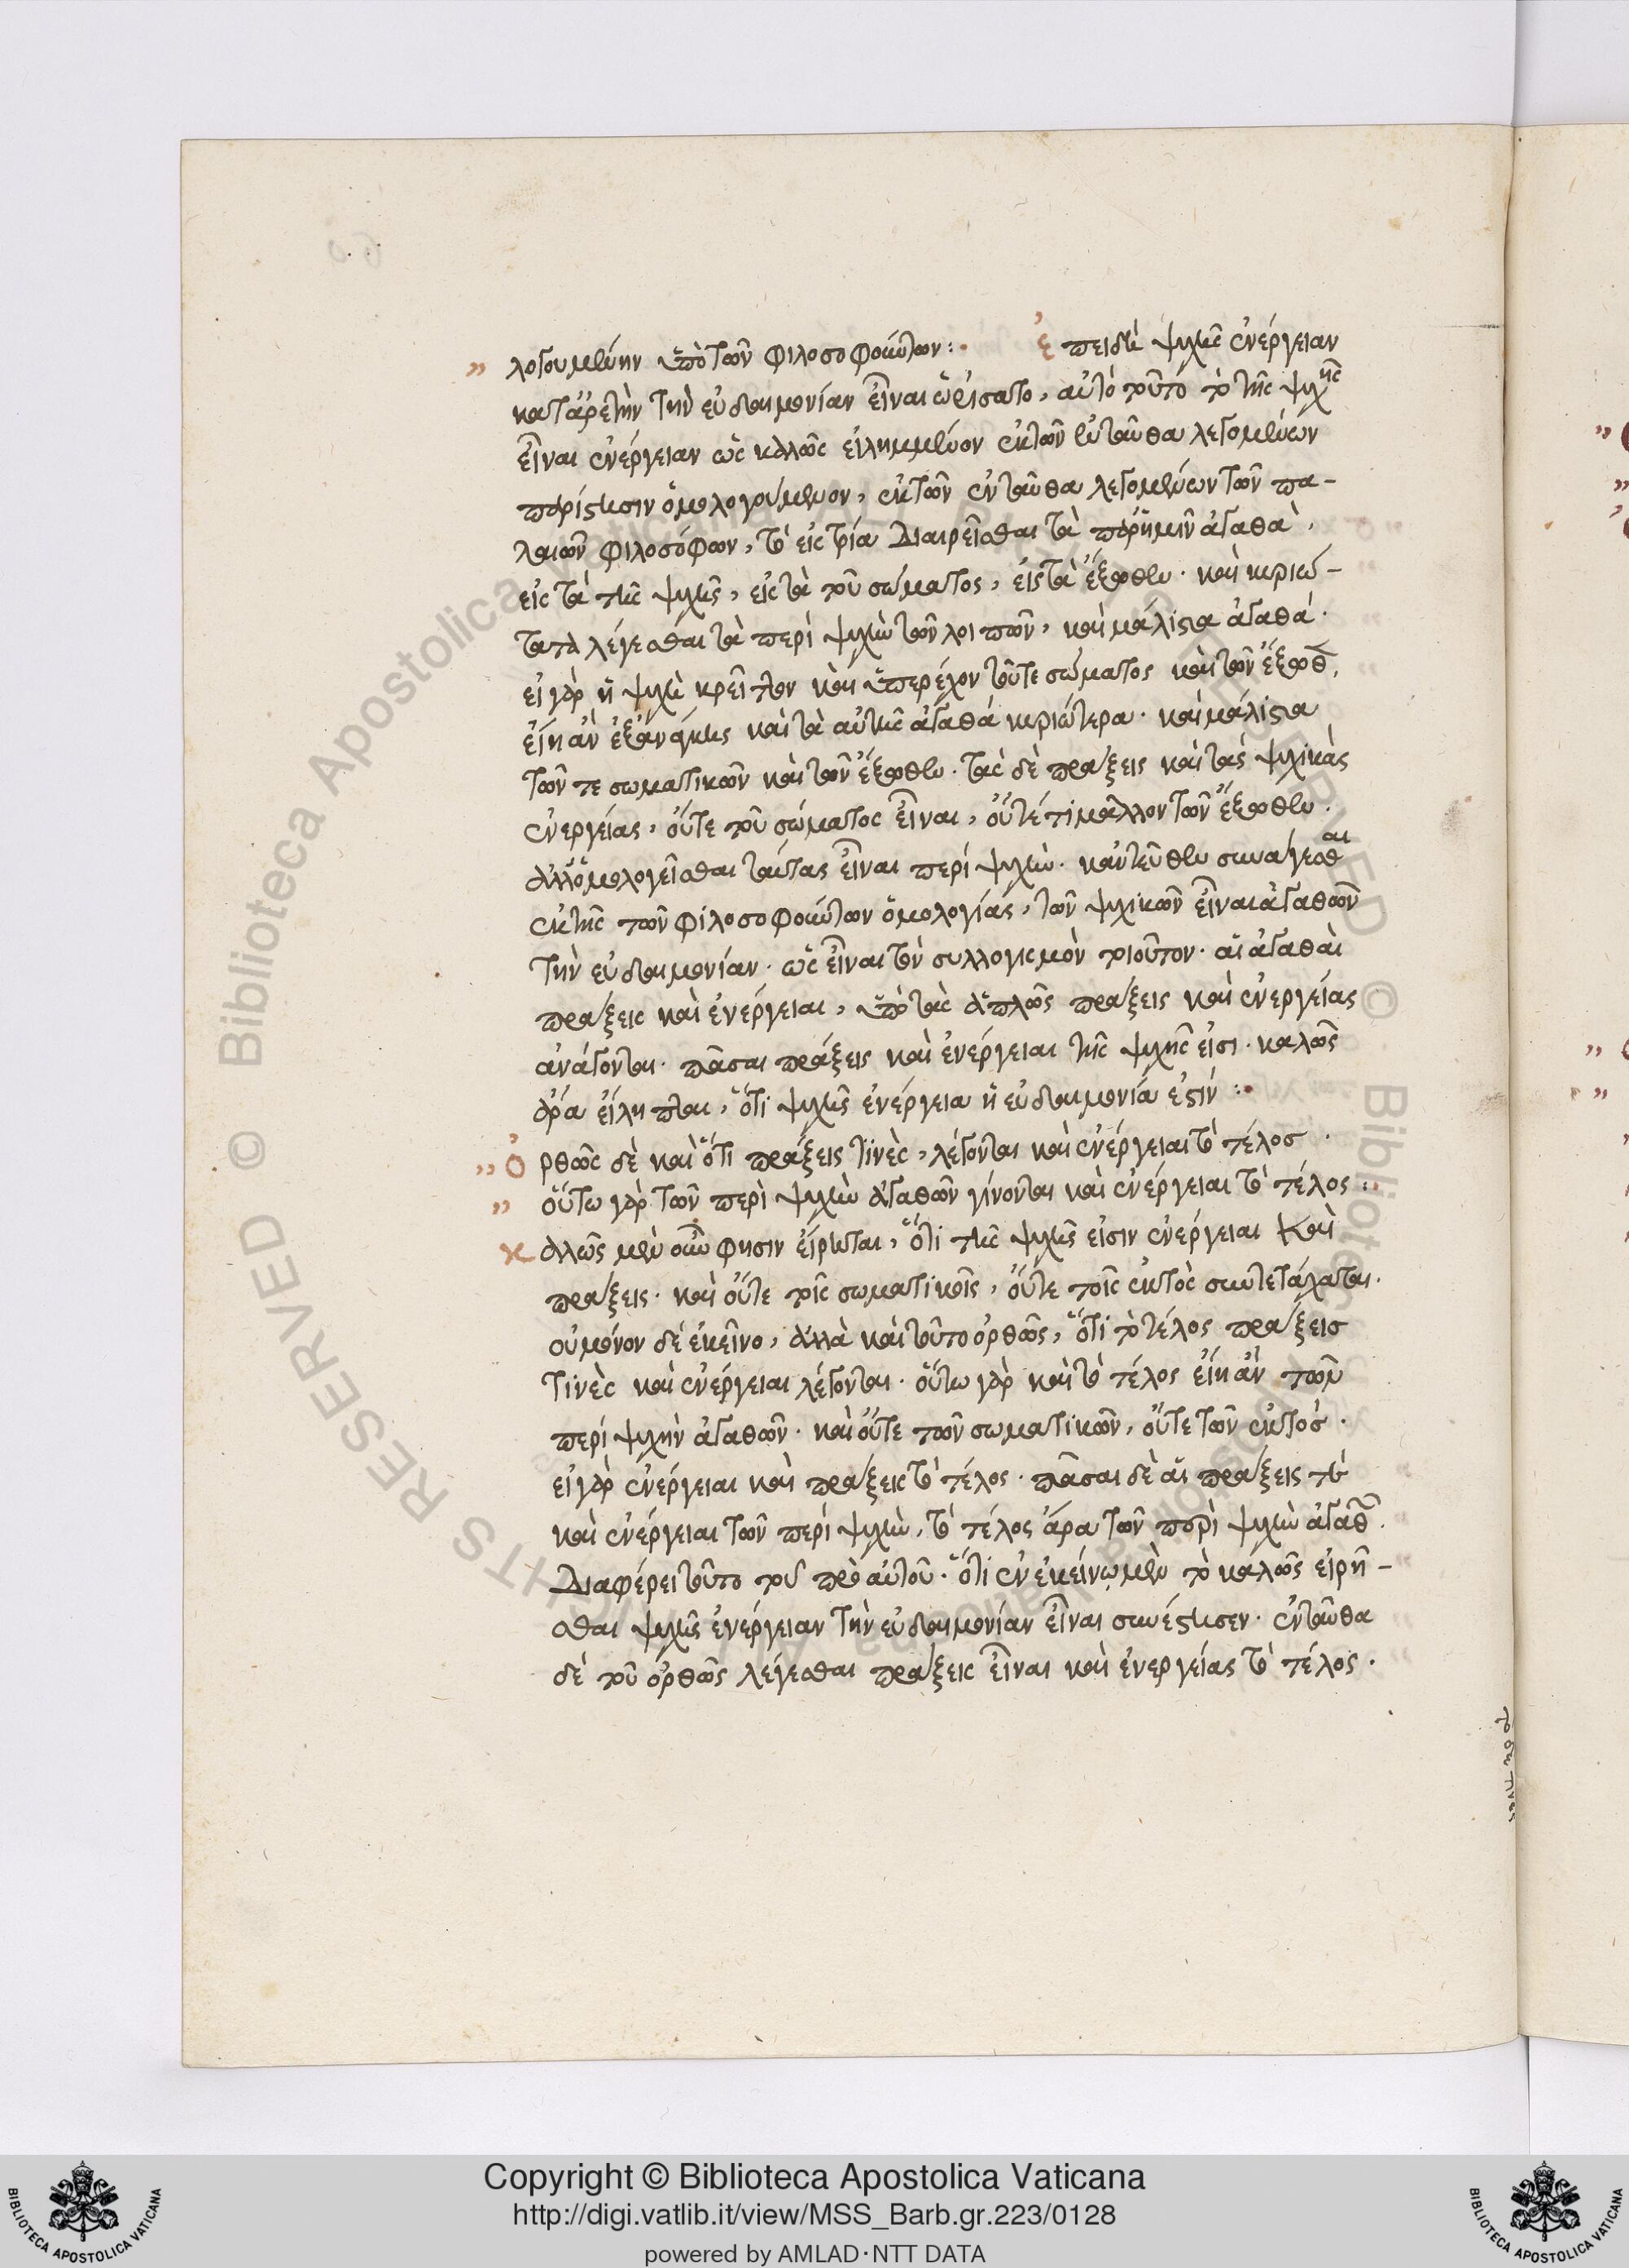 ” λογουμένην ὑπὸ τῶν φιλοσοφούντων :· ἐπειδὴ ψυχῆς ἐνέργειαν
κατ' ἀρετὴν τὴν εὐδαιμονίαν εἶναι ὡρίσατο, αὐτὸ τοῦτο τὸ τῆς ψυχῆς
εἶναι ἐνέργειαν ὡς καλῶς εἰλημμένον ἐκ τῶν ἐνταῦθα λεγομένων
παρίστησιν ὁμολογούμενον, ἐκ τῶν ἐνταῦθα λεγομένων τῶν πα-
λαιῶν φιλοσόφων, τὸ εἰς τρία διαιρεῖσθαι τὰ παρ' ἡμῖν ἀγαθὰ,
εἰς τὰ τῆς ψυχῆς, εἰς τὰ τοῦ σώματος, εἰς τὰ ἔξωθεν· καὶ κυριώ-
τατα λέγεσθαι τὰ περὶ ψυχὴν τῶν λοιπῶν, καὶ μάλιστα ἀγαθά·
εἰ γὰρ ἡ ψυχὴ κρεῖττον καὶ ὑπερέχον τοῦ τε σώματος καὶ τῶν ἔξωθεν,
εἴη ἂν ἐξ ἀνάγκης καὶ τὰ αὐτῆς ἀγαθά κυριώτερα· καὶ μάλιστα
τῶν τε σωματικῶν καὶ τῶν ἔξωθεν· τὰς δὲ πράξεις καὶ τὰς ψυχικὰς
ἐνεργείας, οὔτε τοῦ σώματος εἶναι, οὔτ' ἔτι μᾶλλον τῶν ἔξωθεν·
ἀλλ' ὁμολογεῖσθαι ταύτας εἶναι περὶ ψυχὴν· κἀντεῦθεν συνάγεσθαι
ἐκ τῆς τῶν φιλοσοφούντων ὁμολογίας, τῶν ψυχικῶν εἶναι ἀγαθῶν
τὴν εὐδαιμονίαν· ὡς εἶναι τὸν συλλογισμὸν τοιοῦτον· αἱ ἀγαθαὶ
πράξεις καὶ ἐνέργειαι, ὑπὸ τὰς ἁπλῶς πράξεις καὶ ἐνεργείας
ἀνάγονται· πᾶσαι πράξεις καὶ ἐνέργειαι τῆς ψυχῆς εἰσι· καλῶς
ἄρα εἴληπται, ὅτι ψυχῆς ἐνέργεια ἡ εὐδαιμονία ἐστίν :·
” ὀρθῶς δὲ καὶ ὅτι πράξεις τινὲς, λέγονται καὶ ἐνέργειαι τὸ τέλος·
” οὕτω γὰρ τῶν περὶ ψυχὴν ἀγαθῶν γίνονται καὶ ἐνέργειαι τὸ τέλος :·
καλῶς μὲν οὖν φησιν εἴρηται, ὅτι τῆς ψυχῆς εἰσιν ἐνέργειαι καὶ
πράξεις· καὶ οὔτε τοῖς σωματικοῖς, οὔτε τοῖς ἐκτὸς συντετάχαται·
οὐ μόνον δὲ ἐκεῖνο, ἀλλὰ καὶ τοῦτο ὀρθῶς, ὅτι τὸ τέλος πράξεις
τινὲς καὶ ἐνέργειαι λέγονται· οὕτω γὰρ καὶ τὸ τέλος εἴη ἂν τῶν
περὶ ψυχὴν ἀγαθῶν· καὶ οὔτε τῶν σωματικῶν, οὔτε τῶν ἐκτὸς·
εἰ γὰρ ἐνέργειαι καὶ πράξεις τὸ τέλος· πᾶσαι δὲ αἱ πράξεις τὲ
καὶ ἐνέργειαι τῶν περὶ ψυχὴν, τὸ τέλος ἄρα τῶν περὶ ψυχὴν ἀγαθῶν.
διαφέρει τοῦτο τοῦ πρὸ αὐτοῦ· ὅτι ἐν ἐκείνῳ μὲν τὸ καλῶς εἰρῆ-
σθαι ψυχῆς ἐνέργειαν τὴν εὐδαιμονίαν εἶναι συνέστησεν· ἐνταῦθα
δὲ τοῦ ὀρθῶς λέγεσθαι πράξεις εἶναι καὶ ἐνεργείας τὸ τέλος·
Copyright © Biblioteca Apostolica Vaticana
http://digi.vatlib.it/view/MSS_Barb.gr.223/0128
powered by AMLAD·NTT DATA